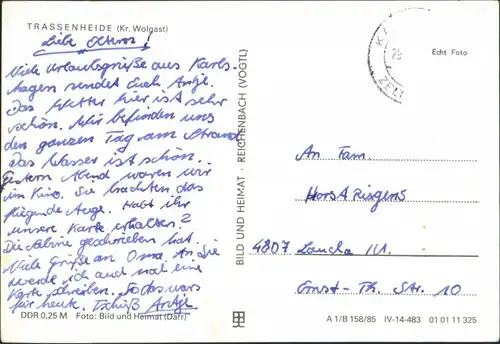 TRASSENHEIDE (Kr. Wolgast)
Liebe Eltern!
Viele Urlaubsgrüße aus Karls-
hagen sendet Euch Antje.
Das Wetter hier ist sehr
schön. Wir befinden uns
den ganzen Tag am Strand.
Das Wasser ist schön.
Gestern Abend waren wir
im Kino. Sie brachten das
fliegende Auge. Habt ihr
unsere Karte erhalten?
Die Sabine geschrieben hat.
Viele Grüße an Oma. An Sie
werde ich auch mal eine
Karte schreiben. So das wars
für heute. Tschüß Antje
DDR 0,25 M Foto: Bild und Heimat (Darr)
BILD UND HEIMAT · REICHENBACH (VOGTL)
Echt Foto
An Fam.
Horst
4807 Laucha /U.
Ernst-Th. Str. 10
A 1/B 158/85 IV-14-483 01 01 11 325